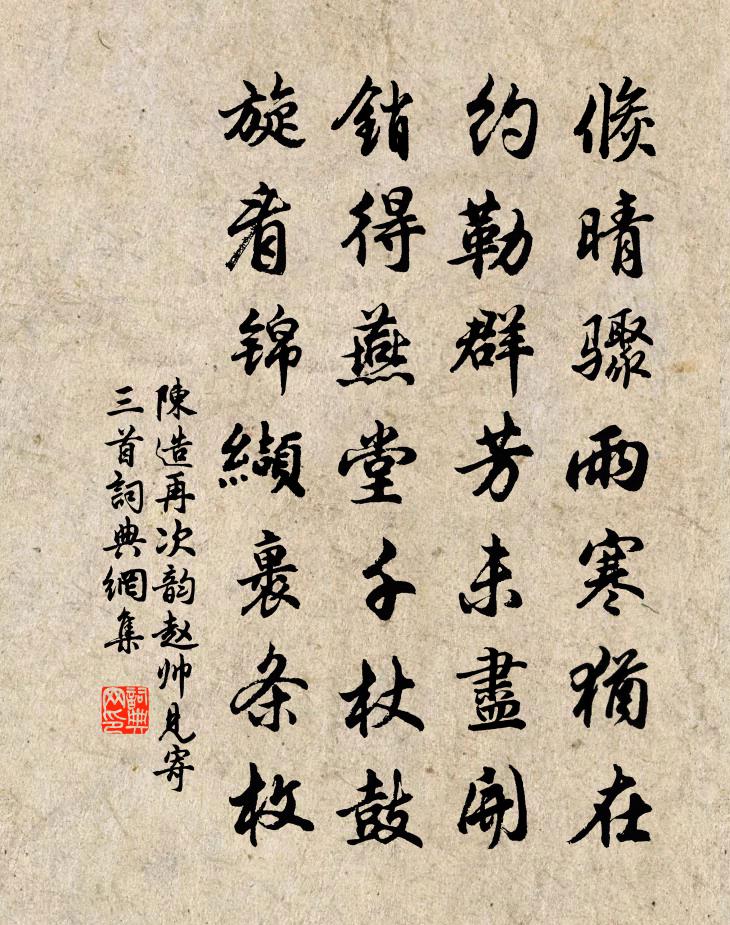 倏晴驟雨寒猶在
約勒群芳未盡開
銷得燕堂千杖鼓
旋看锦纈裹条枚
陳造再次韵赵帅見寄
三首詞典網集
詞典网印